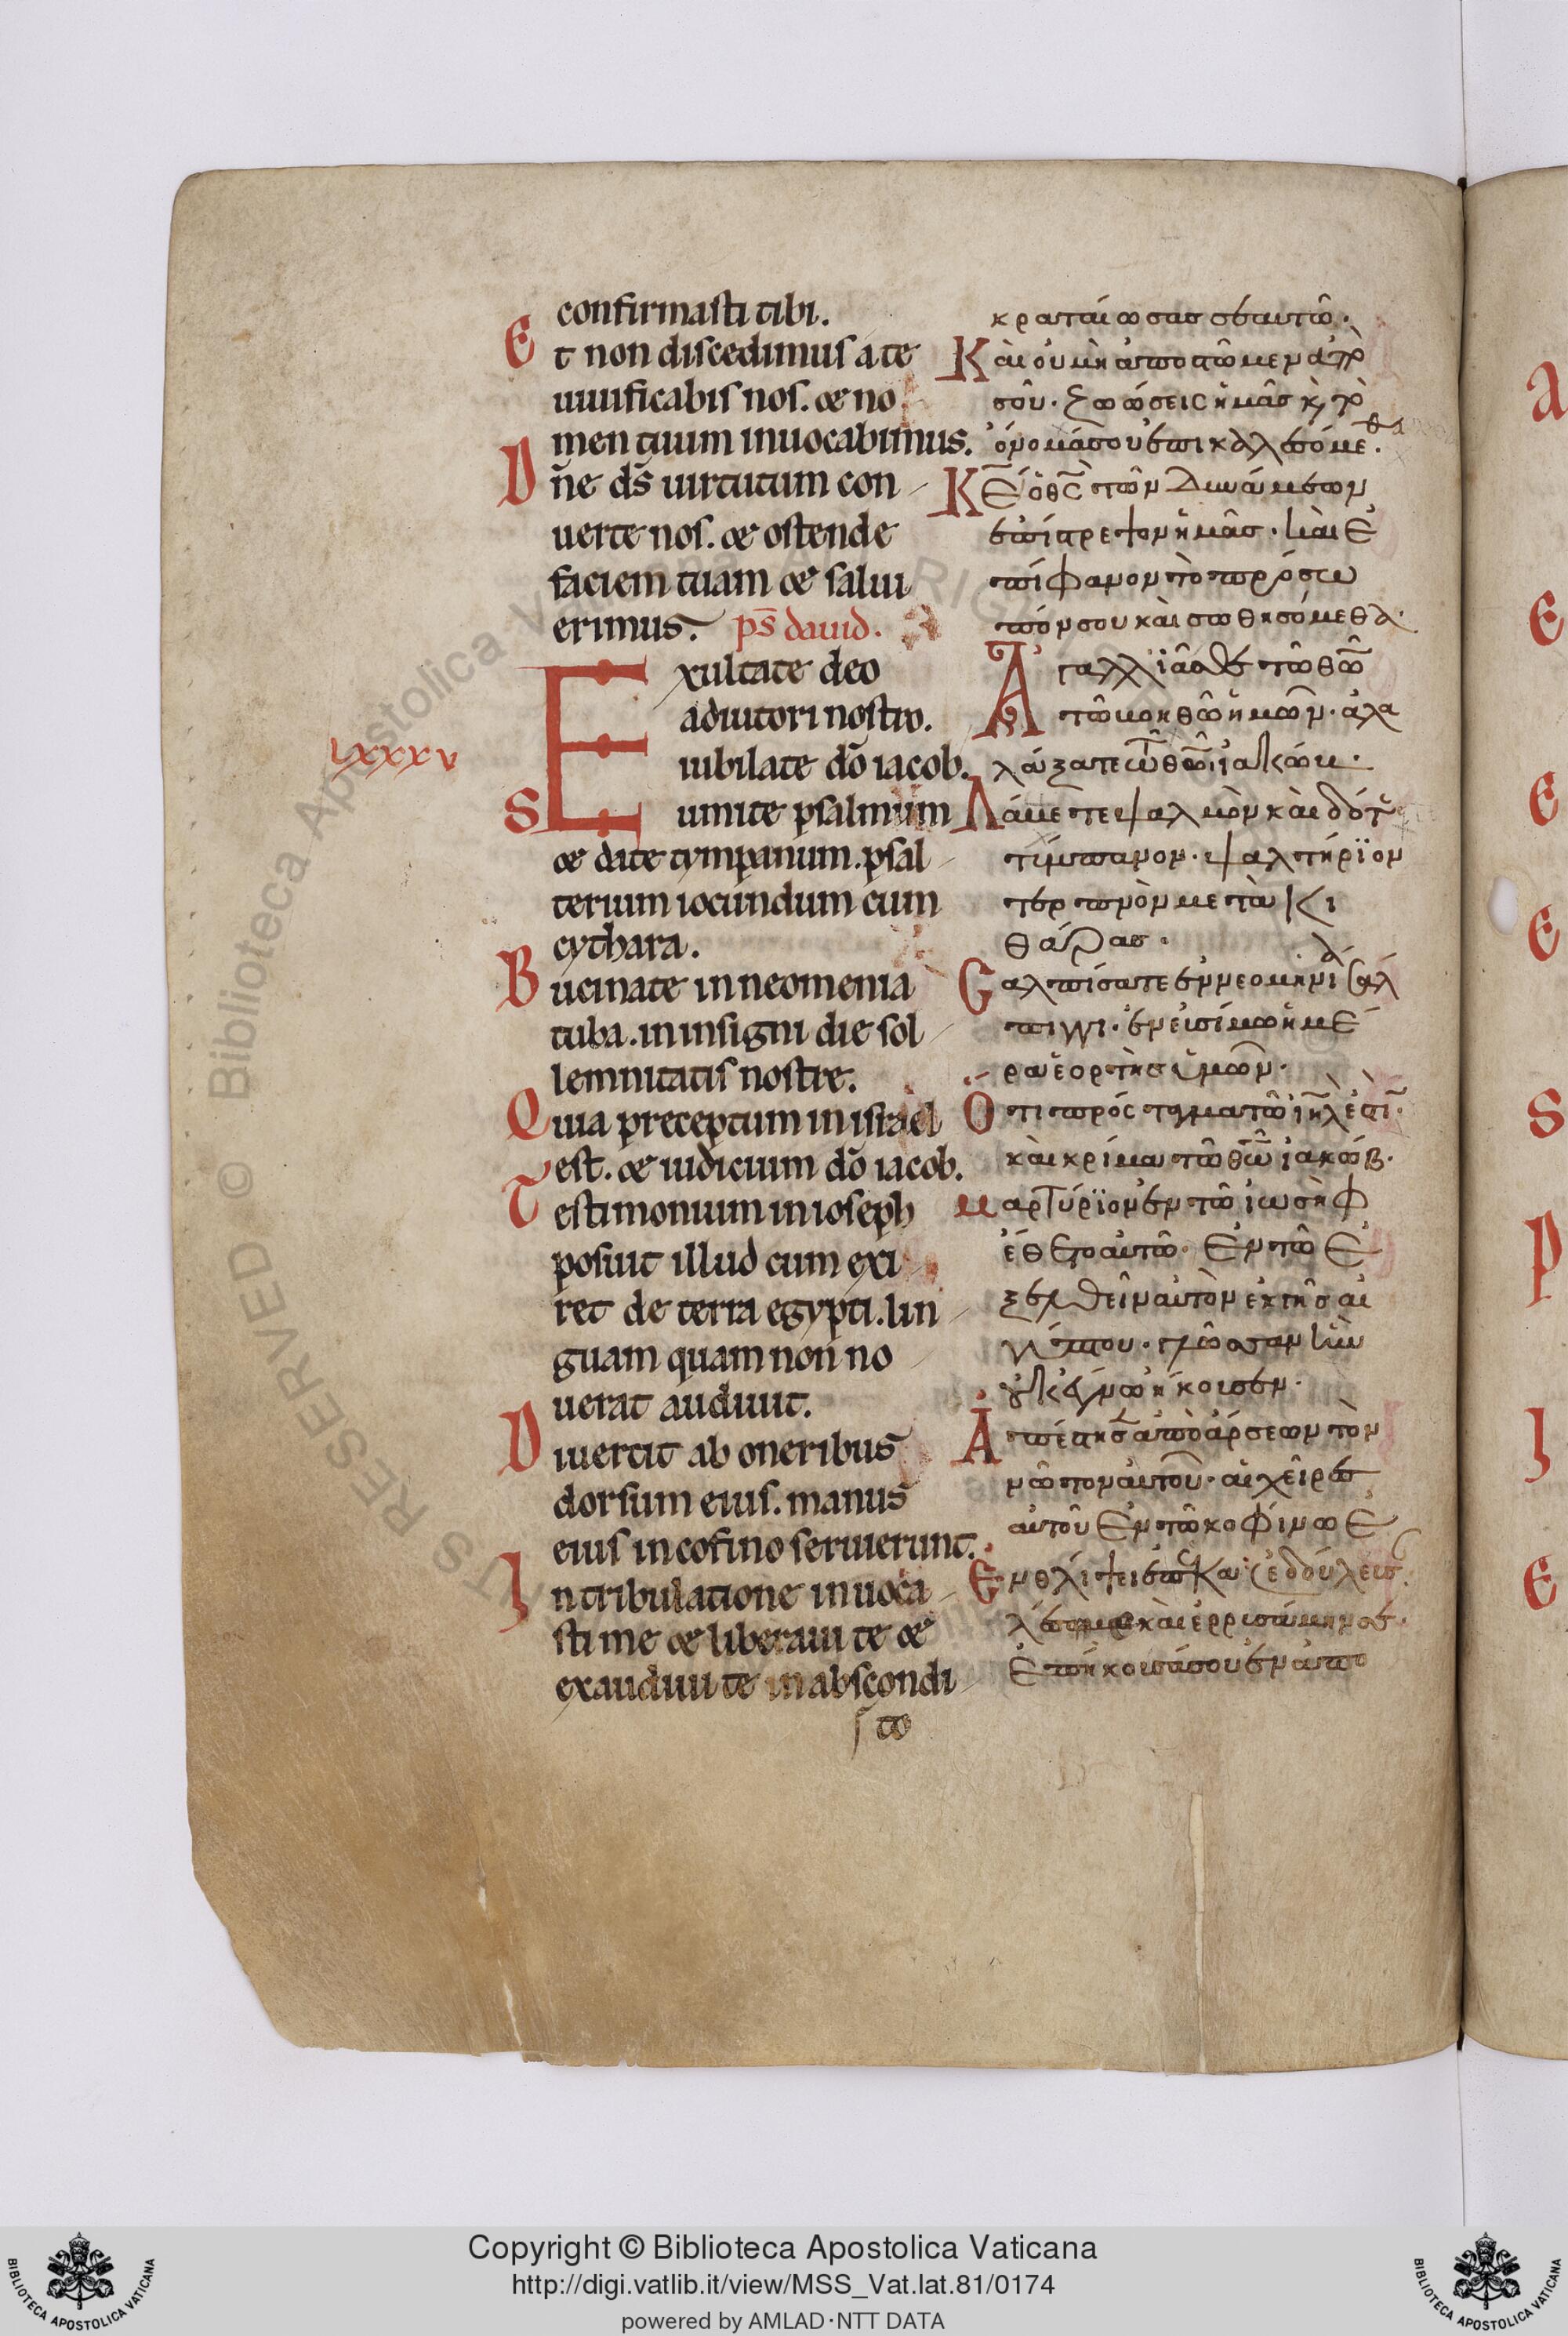 confirmasti tibi.
Et non discedimus a te
uiuificabis nos. & no
men tuum inuocabimus.
Dn̄e ds̄ uirtutum con
uerte nos. & ostende
faciem tuam & salui
erimus. ps̄ dauid.
Exultate deo
adiutori nostro.
LXXXV
iubilate dō iacob.
Sumite psalmum
& date tympanum. psal
terium iocundum cum
cythara.
Bucinate in neomenia
tuba. in insigni die sol
lemnitatis nostre.
Quia preceptum in israel
est. & iudicium dō iacob.
Testimonium in ioseph
posuit illud cum exi
ret de terra egypti. lin
guam quam non no
uerat audiuit.
Diuertit ab oneribus
dorsum eius. manus
eius in cofino seruierunt.
In tribulatione inuoca
sti me & liberaui te &
exaudiui te in abscondi
to
κραταίωσας σεαυτῶ.
Κὰι ὀυ μὴ ἀποστῶμεν ἀπὸ
σοῦ. ζωώσεις ἡμᾶς κ̀ τὸ
ὄνομά σου ἐπικαλεσόμεθα.
Κ̅Ε ὁ θ̅ς τῶν δυνάμεων
ἐπίστρεψον ἡμᾶς. κὰι ἐ
πίφανον τὸ πρόσω
πόν σου κὰι σωθησόμεθα.
Ἀγαλλιᾶσθε τῶ θ̅ῶ
τῶ βοηθῶ ἡμῶν. ἀλα
λάξατε τῶ θ̅ῶ ἰακώβ.
Λάβετε ψαλμὸν κὰι δότε
τίμπανον. ψαλτήριον
τερπνὸν μετὰ κι
θάρας.
Σαλπίσατε ἐν νεομηνία σάλ
πιγγι. ἐν ἐυσίμω ἡμέ
ρα ἑορτῆς ὑμῶν.
Ὅτι πρόσταγμα τῶ ἰη̅λ ἐστι.
κὰι κρίμα τῶ θ̅ῶ ἰακώβ.
Μαρτύριον ἐν τῶ ἰωσὴφ
ἔθετο ἀυτῶ. ἐν τῶ ἐ
ξελθεῖν ἀυτὸν ἐκ γῆς ἀι
γύπτου. γλῶσσαν ἣν
οὐκ ἔγνω ἤκουσεν.
Ἀπέστησεν ἀπὸ ἄρσεων τὸν
νῶτον ἀυτοῦ. ἁι χεῖρες
ἀυτοῦ ἐν τῶ κοφίνω ἐ
δούλευσ
Ἐν θλίψει ἐπεκα
λέσω με κὰι ἐρρυσάμην σε.
Ἐπήκουσά σου ἐν ἀπο
Copyright © Biblioteca Apostolica Vaticana
http://digi.vatlib.it/view/MSS_Vat.lat.81/0174
powered by AMLAD·NTT DATA